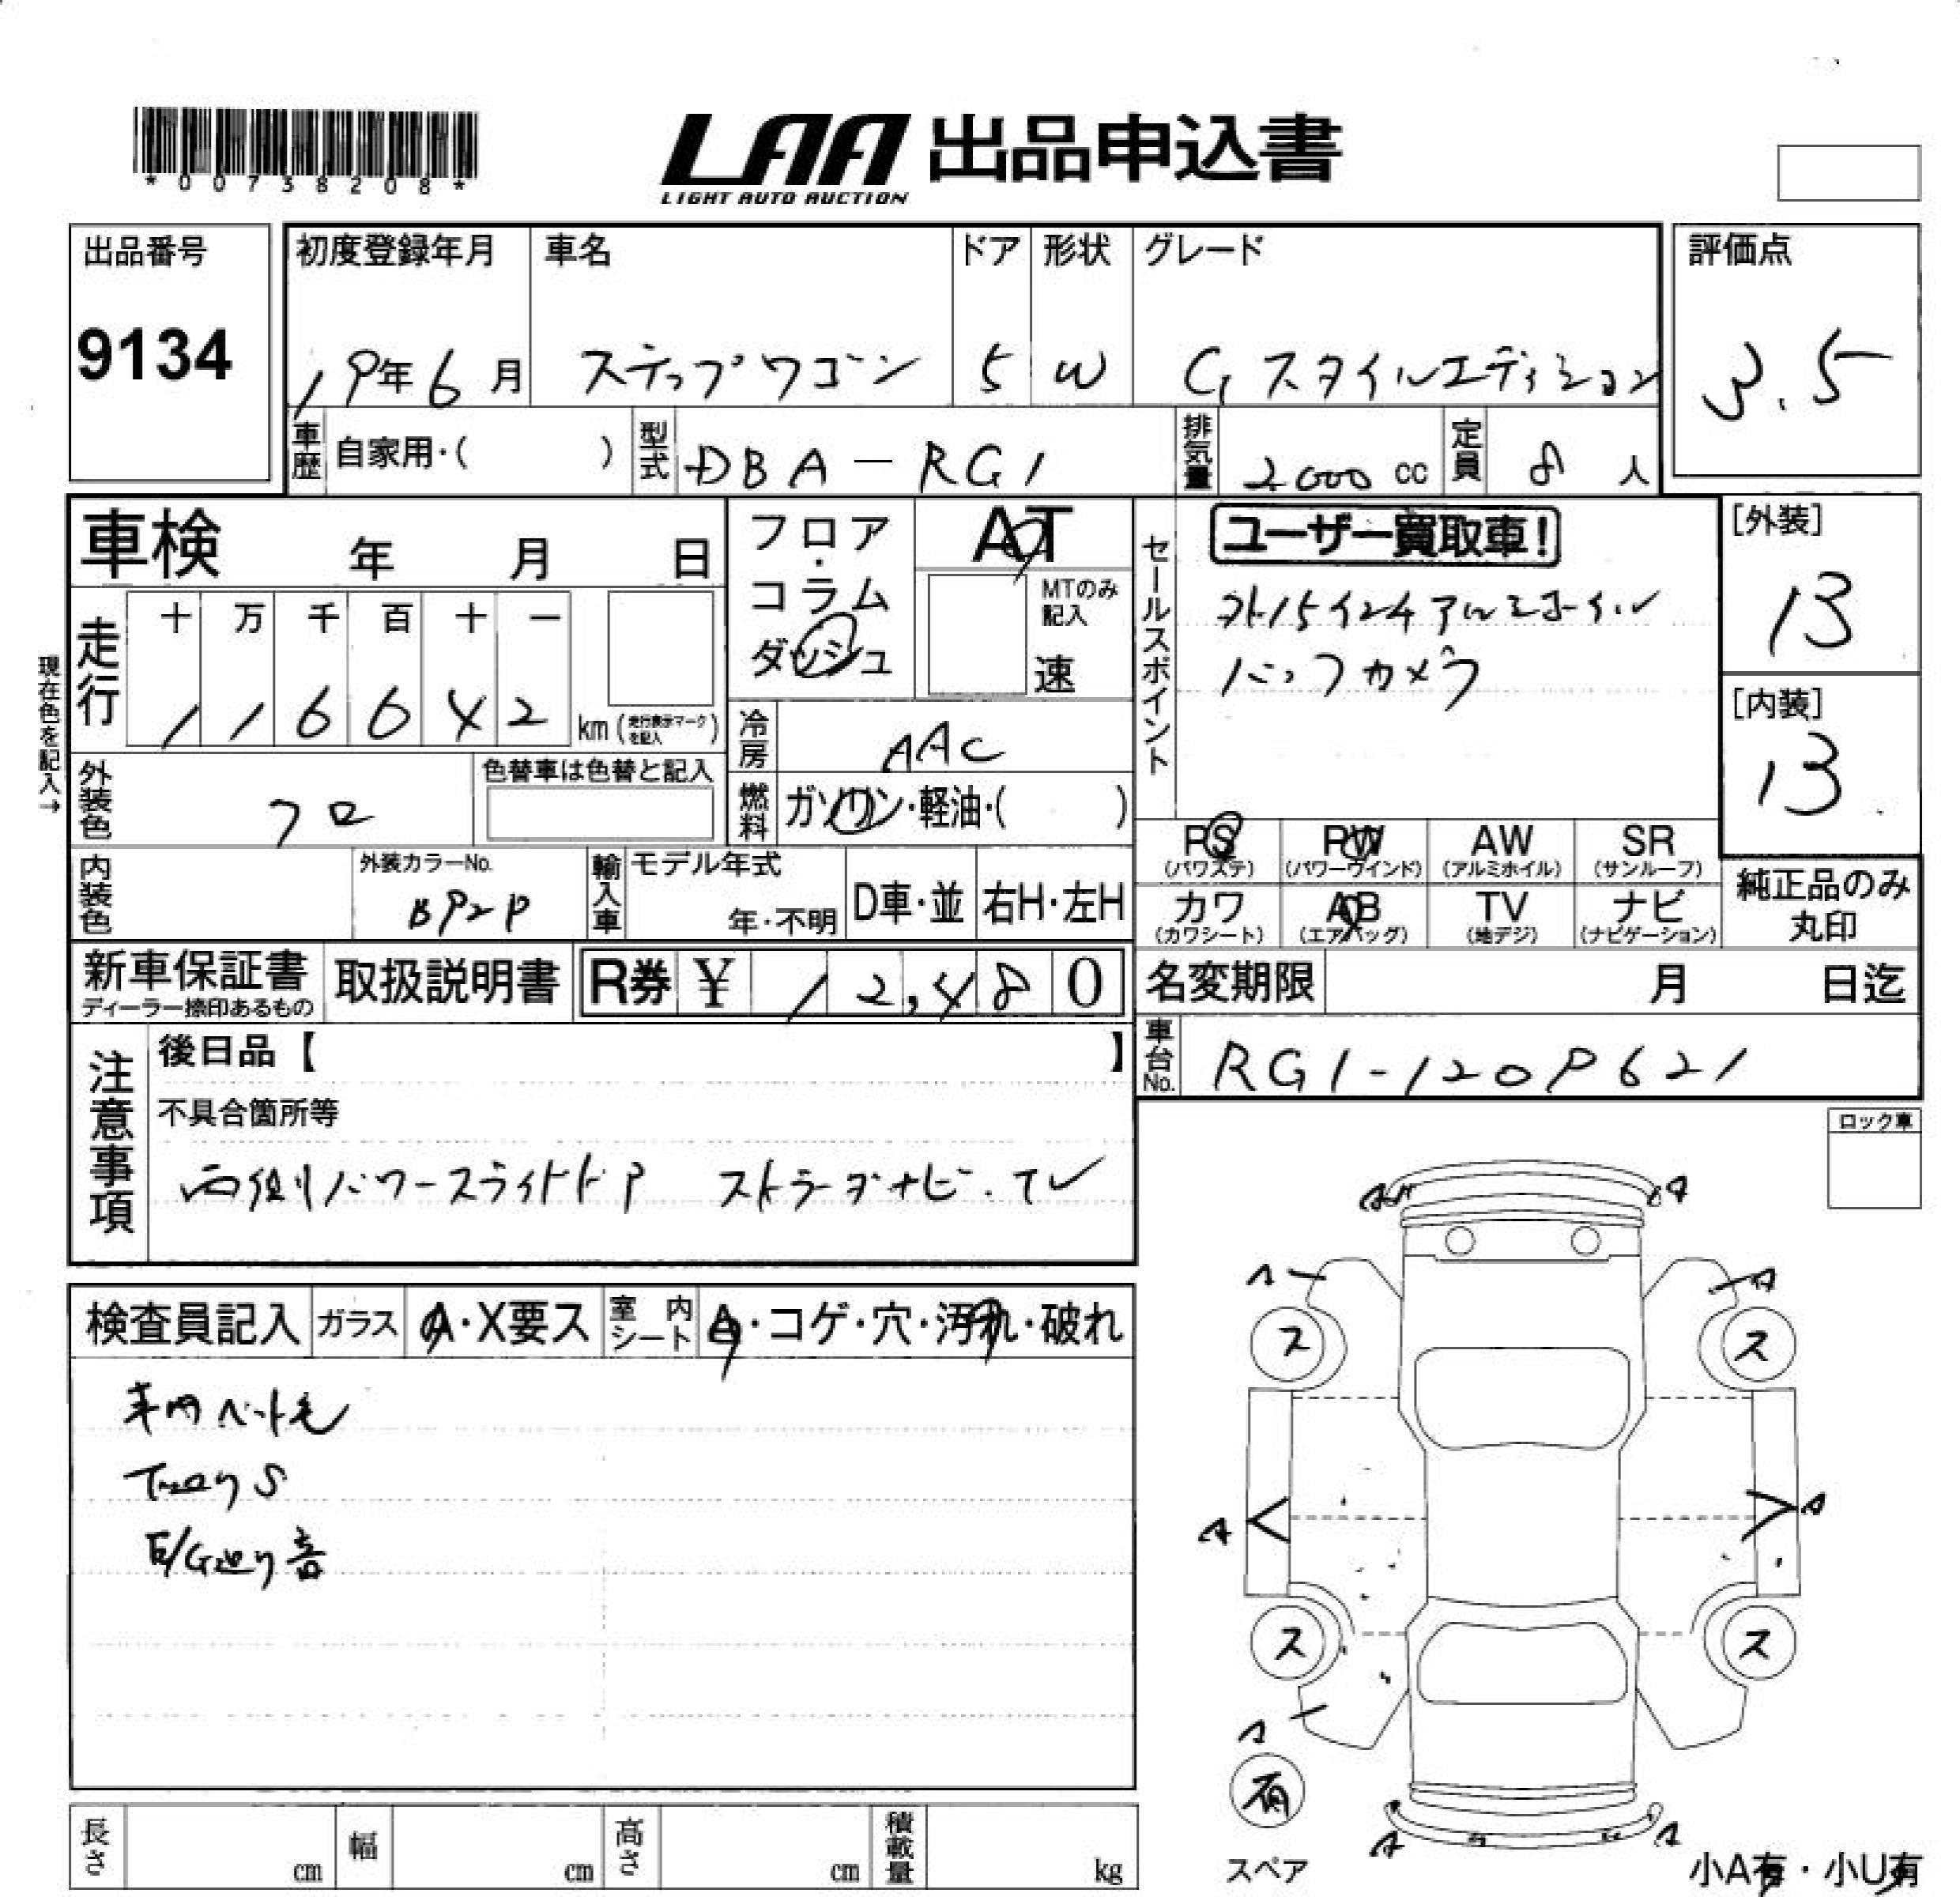 *00738208*
LAA 出品申込書
LIGHT AUTO AUCTION
出品番号
9134
初度登録年月
19年6月
車名
ステップワゴン
ドア
5
形状
W
グレード
G スタイルエディション
評価点
3.5
車歴 自家用・( )
型式 DBA-RG1
排気量 2000 cc
定員 8 人
車検 年 月 日
現在色を記入→
走行
十 万 千 百 十 一
1 1 6 6 4 2
km (走行表示マークを記入)
フロア・コラム
ダッシュ
AT
MTのみ記入
速
冷房 AAC
燃料 ガソリン・軽油・( )
外装色 クロ
色替車は色替と記入
内装色
外装カラーNo.
輸入車 モデル年式
年・不明
D車・並
右H・左H
セールスポイント
ユーザー買取車!
外15インチアルミホイル
バックカメラ
[外装]
13
[内装]
13
PS (パワステ)
PW (パワーウインド)
AW (アルミホイル)
SR (サンルーフ)
カワ (カワシート)
AB (エアバッグ)
TV (地デジ)
ナビ (ナビゲーション)
純正品のみ
丸印
新車保証書
ディーラー捺印あるもの
取扱説明書
R券 ¥ 12,480
名変期限 月 日迄
車台No. RG1-1209621
注意事項
後日品【 】
不具合箇所等
両側パワースライドドア ストラーダナビ・TV
ロック車
検査員記入
ガラス A・X要ス
室内シート A・コゲ・穴・汚れ・破れ
車内ペット毛
E/G廻り音
A A
A A
ス ス
A A
ス ス
A
有
スペア
A A
小A有・小U有
長さ cm
幅 cm
高さ cm
積載量 kg